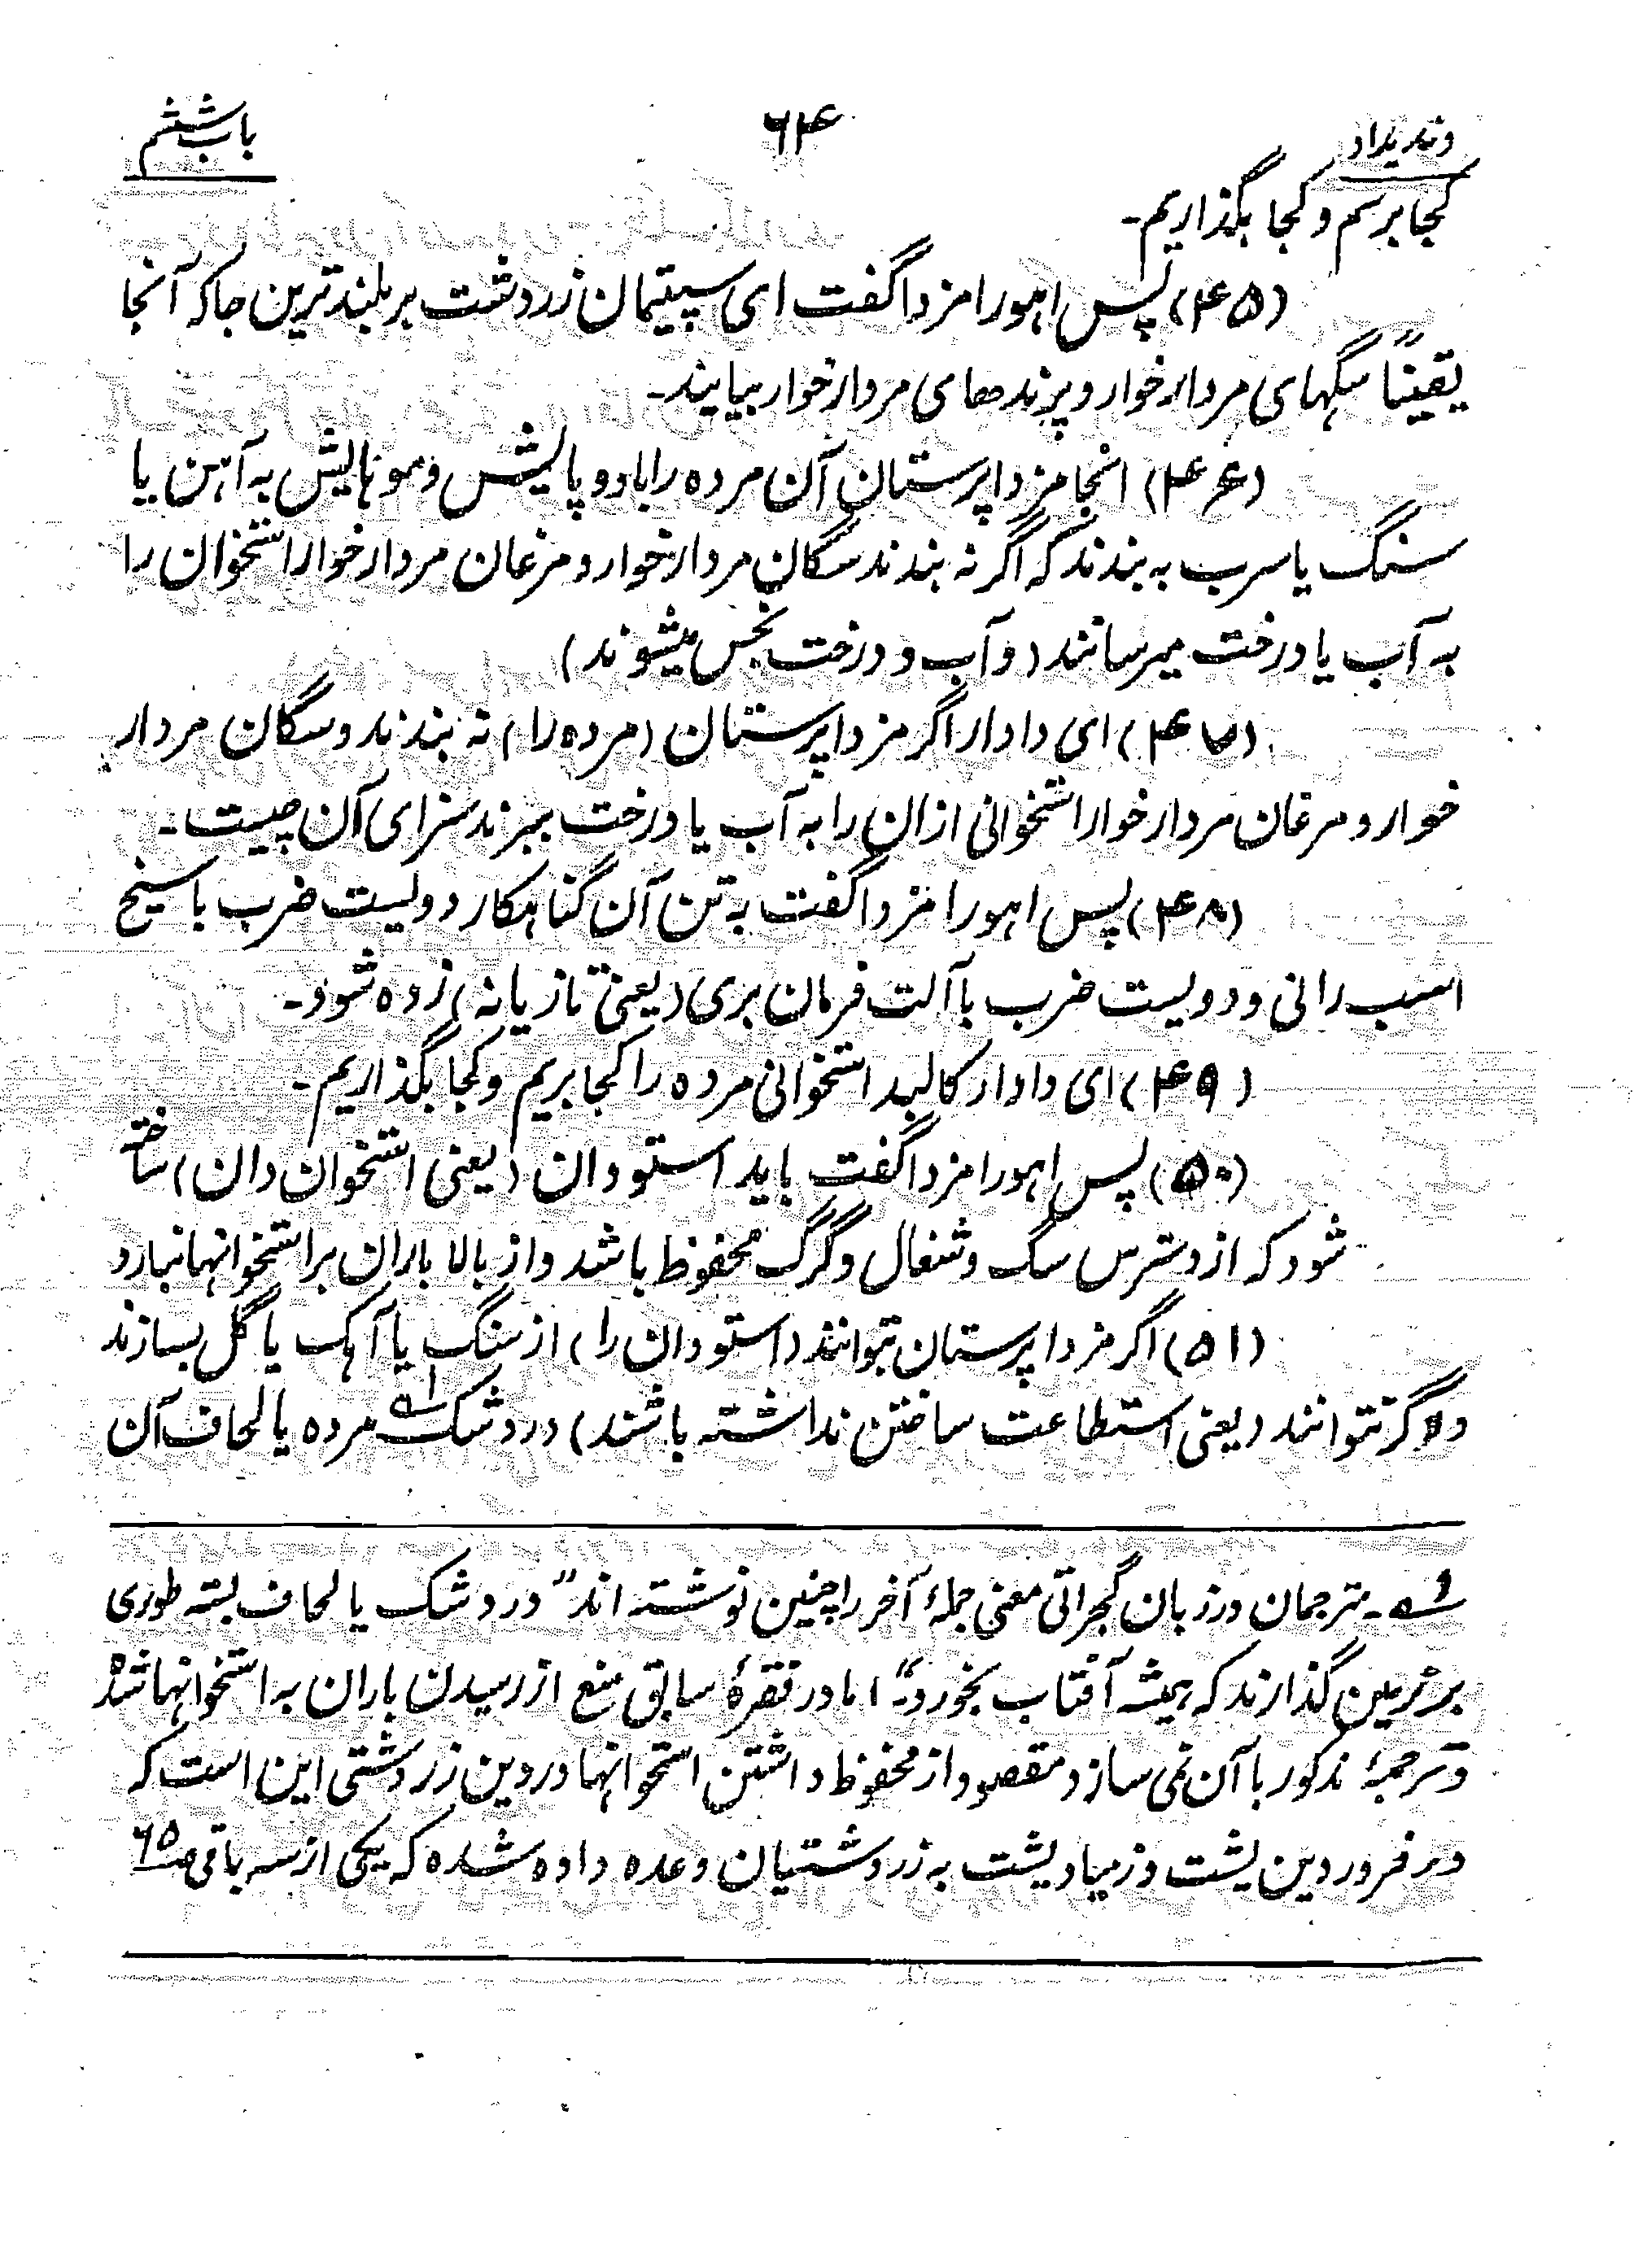 وندیداد
۶۴
باب ششم
کجا برسم و کجا بگذاریم-
(۴۵) پس اهورا مزدا گفت ای سپیتمان زردشت بر بلندترین جا که آنجا
یقیناً سگهای مردار خوار و پرندهای مردار خوار بیایند-
(۴۶) انجا مزدا پرستان آن مرده را با دو پایش و موهایش به آهن یا
سنگ یا سرب به بندند که اگر نه بندند سگان مردار خوار و مرغان مردار خوار استخوان را
به آب یا درخت میرسانند (و آب و درخت نجس میشوند)
(۴۷) ای دادار اگر مزدا پرستان (مرده را) نه بندند و سگان مردار
خوار و مرغان مردار خوار استخوانی ازان را به آب یا درخت ببرند سزای آن چیست-
(۴۸) پس اهورا مزدا گفت به تن آن گناهکار دولیست ضرب با سیخ
اسب رانی و دولیست ضرب با آلت فرمان بری (یعنی تازیانه) زده شود-
(۴۹) ای دادار کالبد استخوانی مرده را کجا بریم و کجا بگذاریم-
(۵۰) پس اهورا مزدا گفت باید استودان (یعنی استخوان دان) ساخته
شود که از دسترس سگ و شغال و گرگ محفوظ باشد و از بالا باران بر استخوانها نبارد
(۵۱) اگر مزدا پرستان بتوانند (استودان را) از سنگ یا آهک یا گل بسازند
و اگر نتوانند (یعنی استطاعت ساختن نداشته باشند) در دوشک؎۱ مرده یا لحاف آن
؎۱- مترجمان در زبان گجراتی معنی جملهٔ آخر را چنین نوشته اند "در دوشک یا لحاف بسته طوری
بر زمین گذارند که همیشه آفتاب بخورد-" اما در فقرهٔ سابق منع از رسیدن باران به استخوانها شده
و ترجمهٔ مذکور با آن نمی سازد و مقصود از محفوظ داشتن استخوانها در دین زردشتی این است که
در فروردین یشت و زمیاد یشت به زردشتیان وعده داده شده که یکی از سه باقی صـ ۶۵